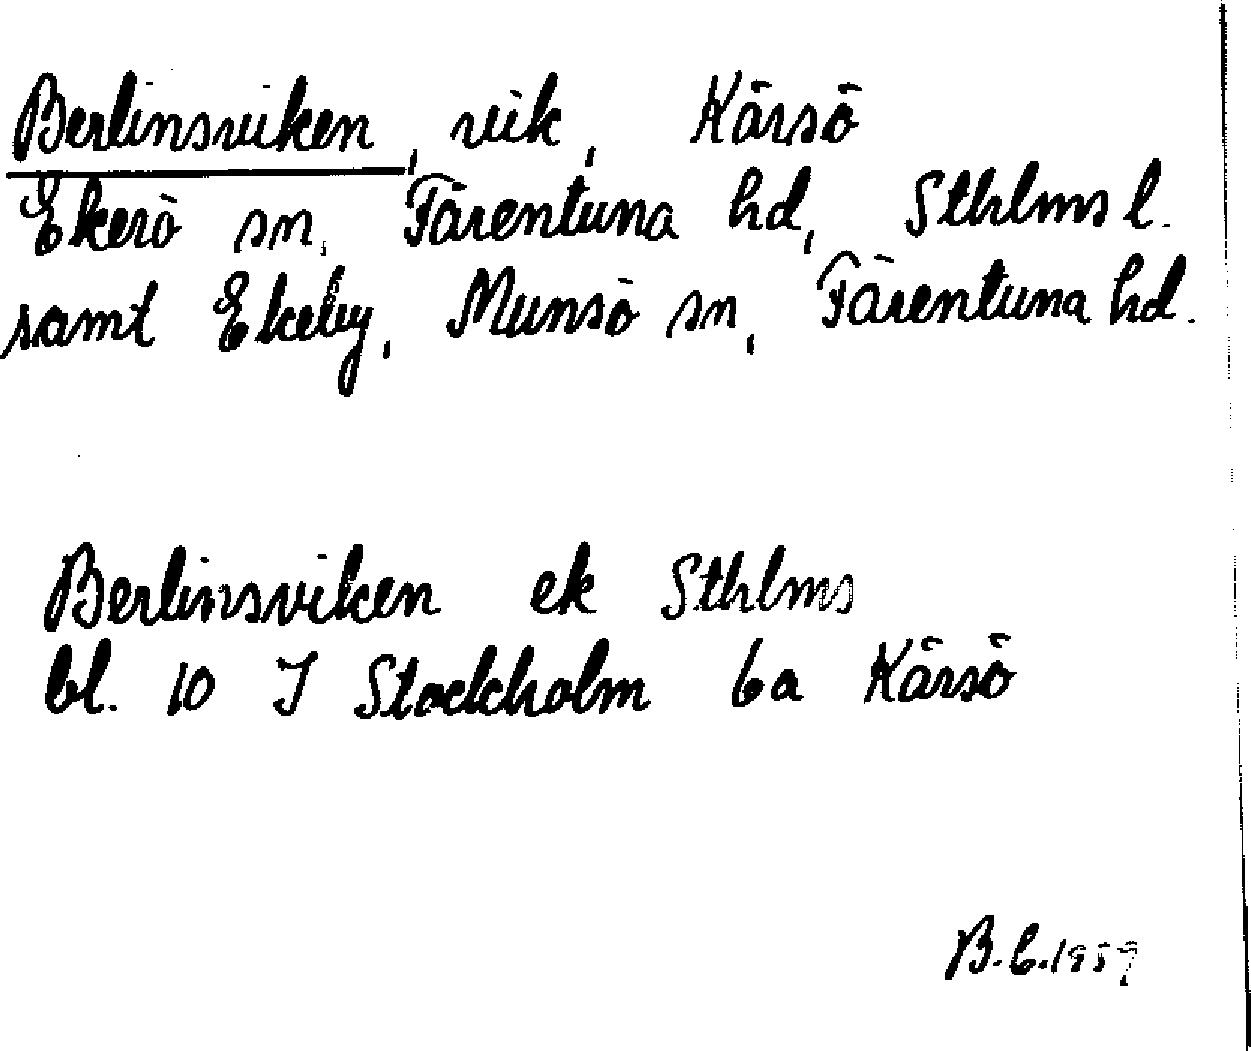 Berlinsviken, vik, Kärsö
Ekerö sn, Färentuna hd, Sthlms l.
samt Ekeby, Munsö sn, Färentuna hd.
Berlinsviken ek Sthlms
bl. 10 I Stockholm 6a Kärsö
B.C. 1959